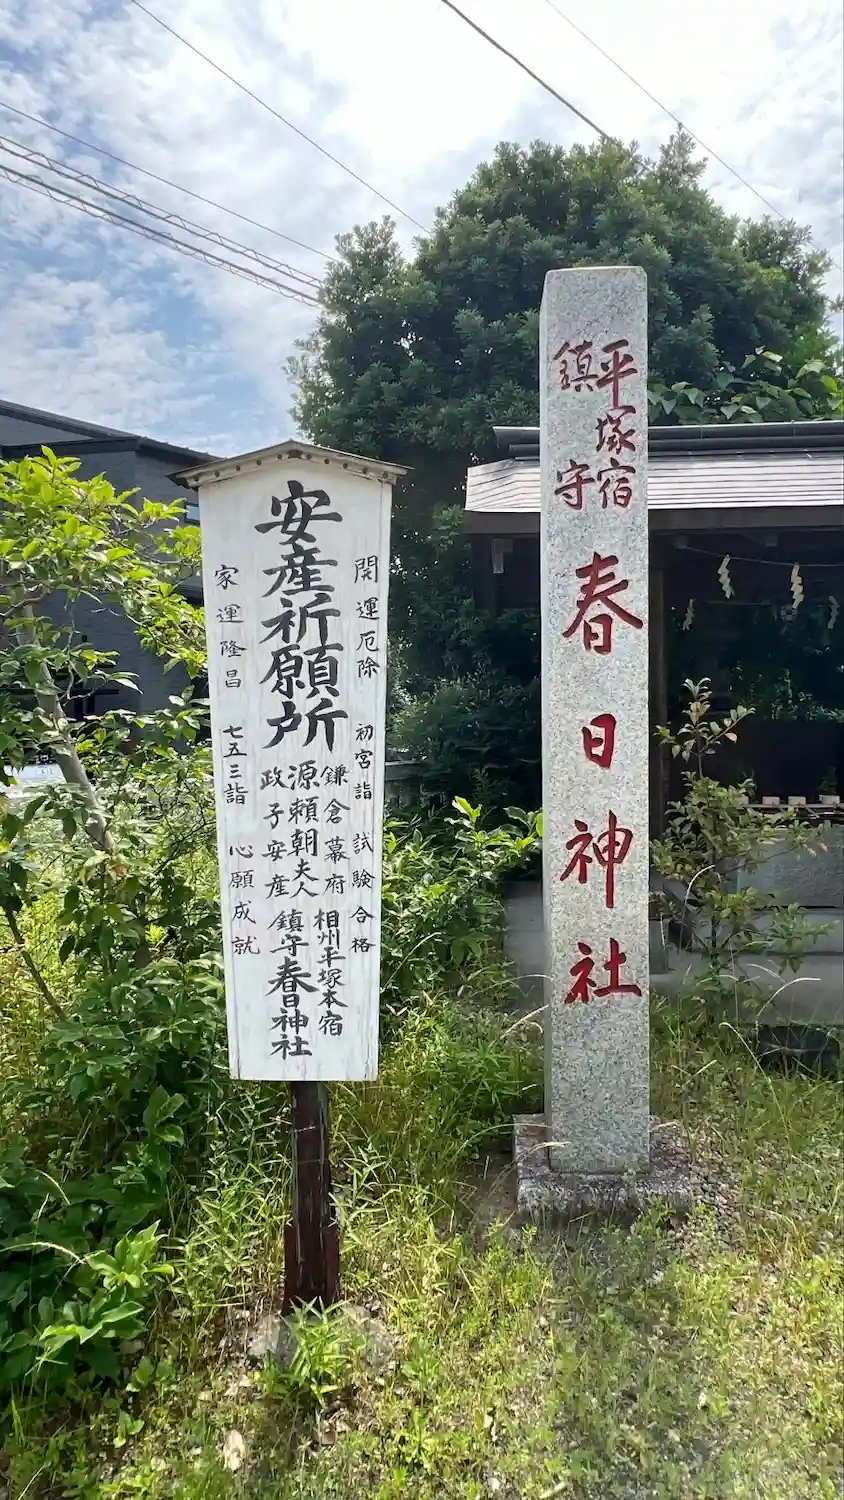 開運厄除 初宮詣 試験合格
安産祈願所
鎌倉幕府
源頼朝夫人
政子安産
相州平塚本宿
鎮守春日神社
家運隆昌 七五三詣 心願成就
平塚宿
鎮守
春日神社